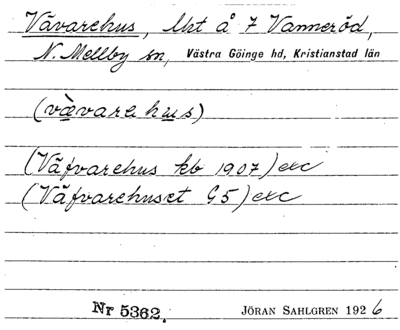 Vävarehus, lht å 7 Vanneröd,
N. Mellby sn, Västra Göinge hd, Kristianstad län
(vä̀vara hu̲s)
(Väfvarehus kb 1907) exc
(Väfvarehuset G5) exc
Nr 5362. JÖRAN SAHLGREN 1926